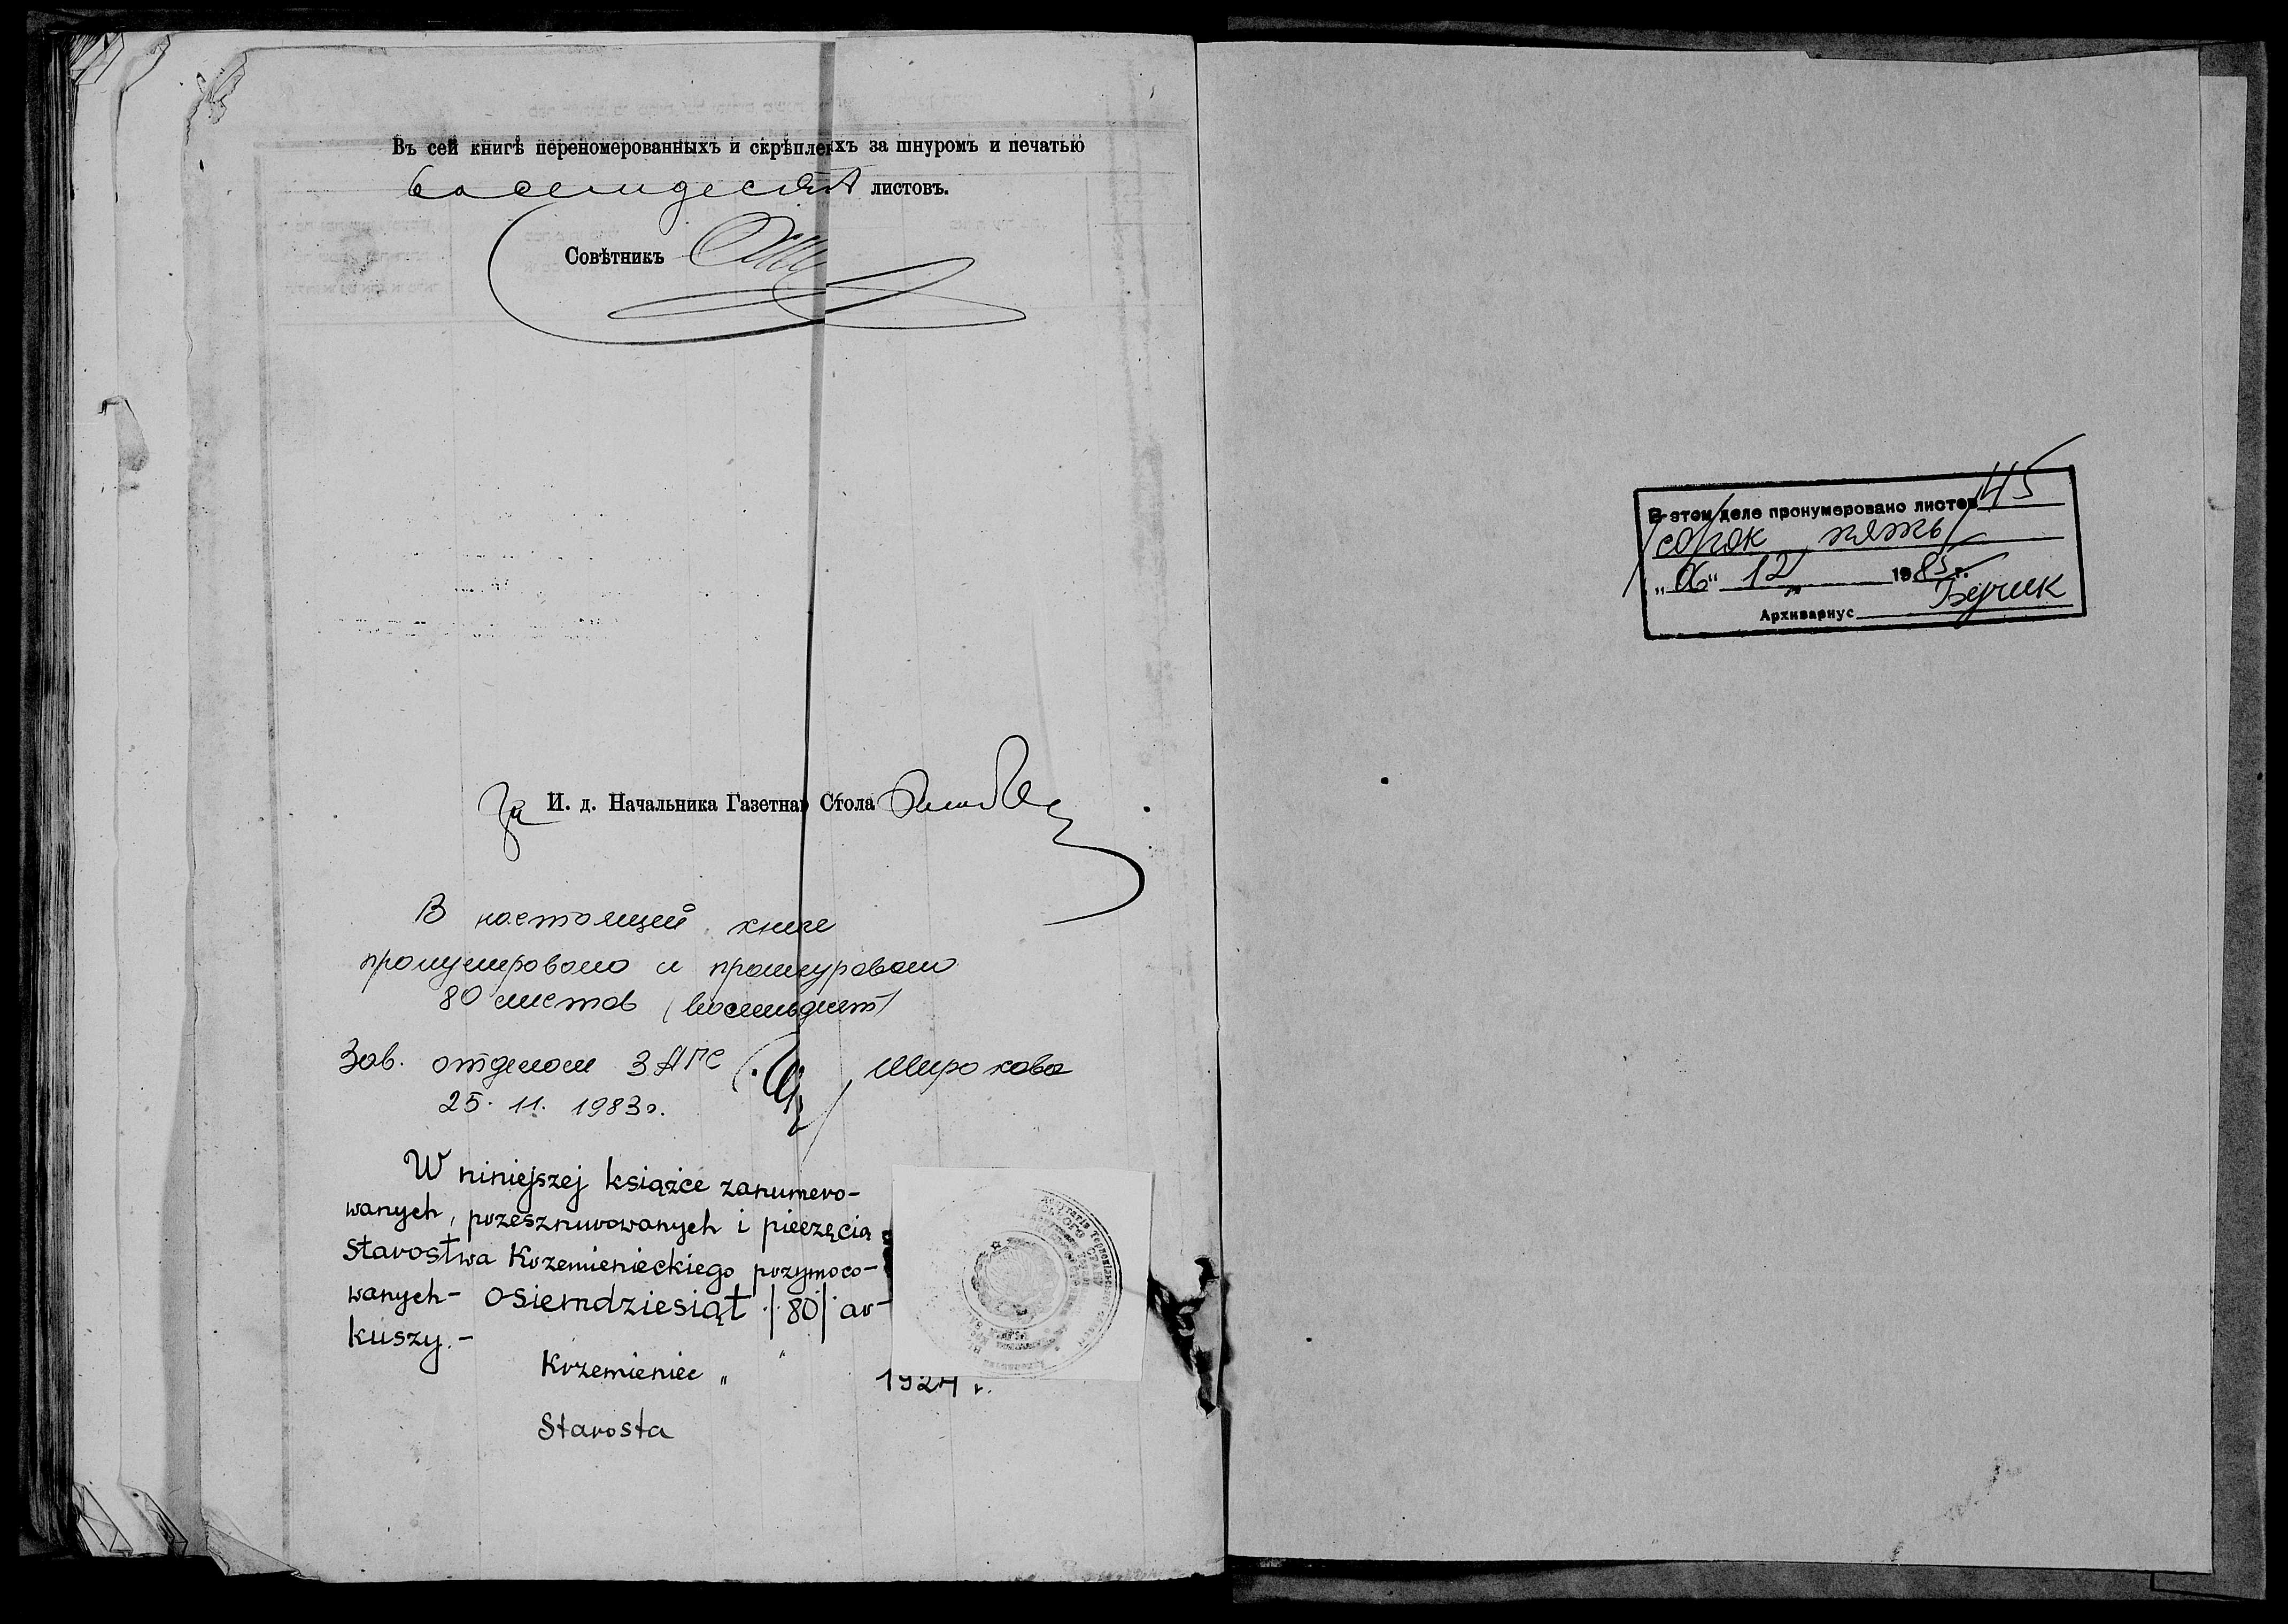 Въ сей книгѣ переномерованныхъ и скрѣпленхъ за шнуромъ и печатью
восемдесятъ листовъ.
Совѣтникъ
За И. д. Начальника Газетнаг Стола
В настоящей книге
пронумеровано и прошнуровано
80 листов (восемьдесят)
Зав. отделом ЗАГС Широкова
25. 11. 1983г.
W niniejszej książce zanumero-
wanych, przesznurowanych i pieczęcią
Starostwa Krzemienieckiego przymoco-
wanych- osiemdziesiąt /80/ ar-
kuszy.-
Krzemieniec „ " 1924 r.
Starosta
В этом деле пронумеровано листов 45
/сорок пять/
„06" 12 1985 г.
Архивариус